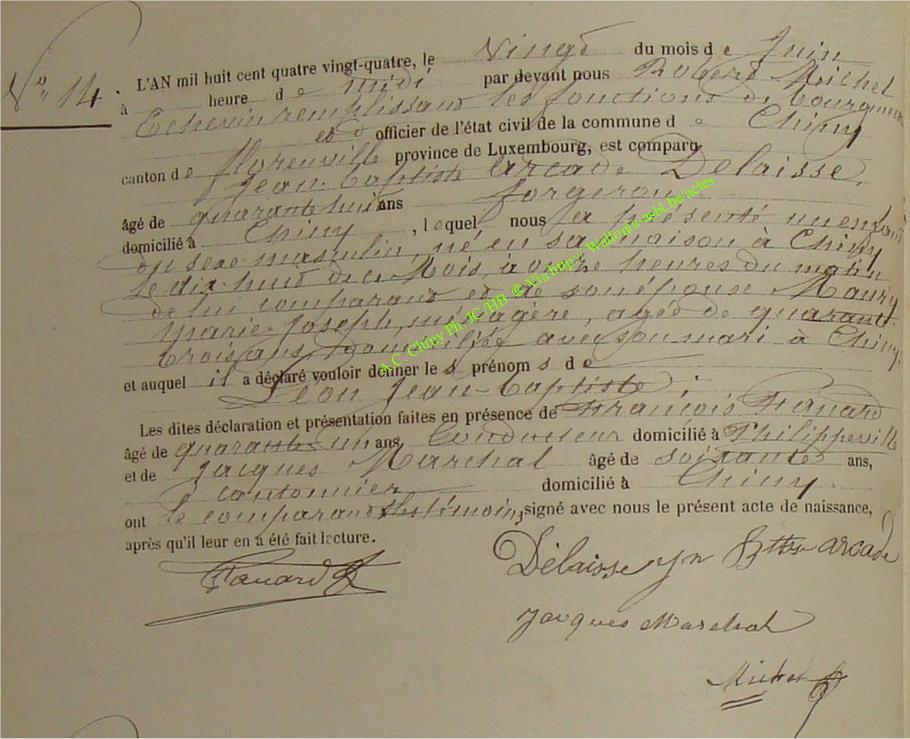 N° 14.
L'AN mil huit cent quatre vingt-quatre, le vingt du mois de Juin
à heure de midi par devant nous Robert Michel
Echevin remplissant les fonctions de bourgmestre
et d officier de l'état civil de la commune de Chiny
canton de florenville province de Luxembourg, est comparu
Jean-baptiste arcade Delaisse,
âgé de quarante huit ans forgeron
domicilié à Chiny, lequel nous a présenté un enfant
du sexe masculin, né en sa maison à Chiny
le dix huit de ce Mois, à onze heures du matin
de lui comparant et de son épouse Maury
Marie-Joseph, ménagère, agée de quarante
trois ans, domiciliée avec son mari à Chiny,
et auquel il a déclaré vouloir donner les prénoms de
Léon Jean-Baptiste.
Les dites déclaration et présentation faites en présence de François Fanard
âgé de quarante un ans, Conducteur domicilié à Philippeville
et de Jacques Marchal âgé de soixante ans,
cantonnier domicilié à Chiny.
ont le comparant & les témoins, signé avec nous le présent acte de naissance,
après qu'il leur en a été fait lecture.
Fanard F
Délaisse Jn Btte arcade
Jacques Marchal
Michel R
A.C. Chiny Ph. JC HB @ Via http:// Wallonia-asbl be/actes